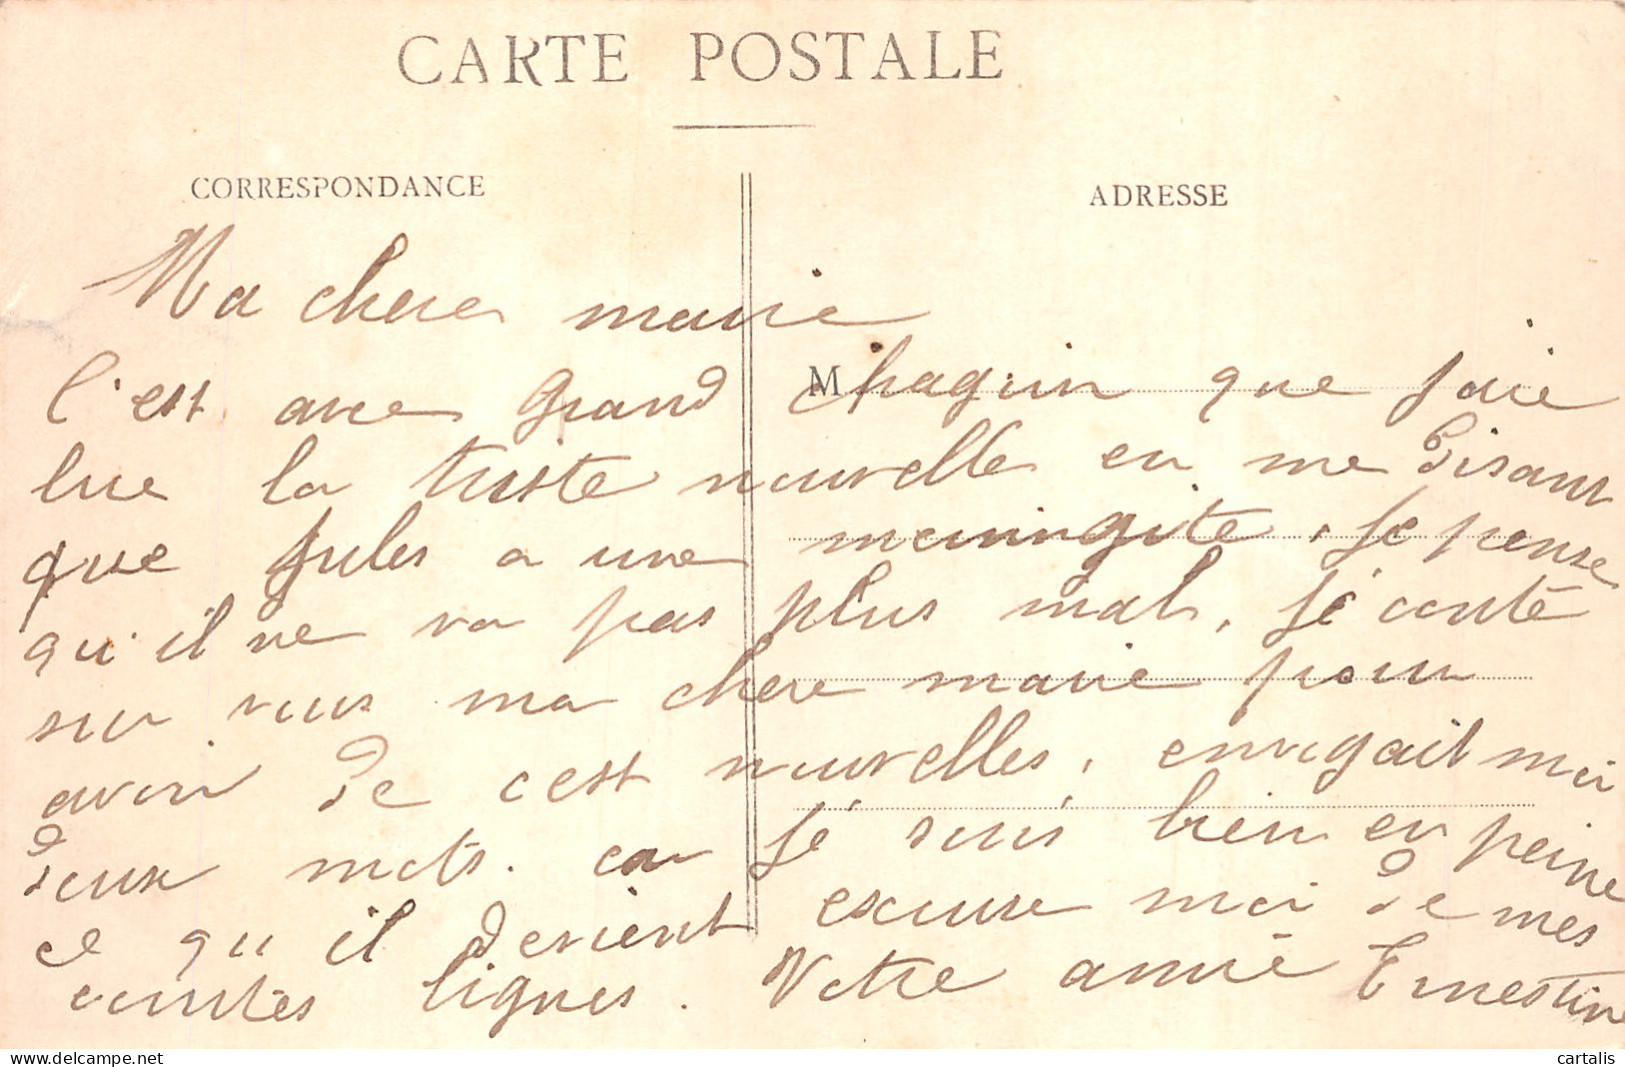 CARTE POSTALE
CORRESPONDANCE
ADRESSE
Ma chere marie
C'est avec grand chagrin que j'aie
M
lue la triste nouvelle en me disant
que Jules a une meningite. Je pense
qu'il ne va pas plus mal, Je conté
sur vous ma chere marie pour
avoir de c'est nouvelles, envogait moi
deux mots. car Je suis bien en peine
ce qu'il devient excuse moi de mes
courtes lignes. Votre amie Ernestine
cartalis